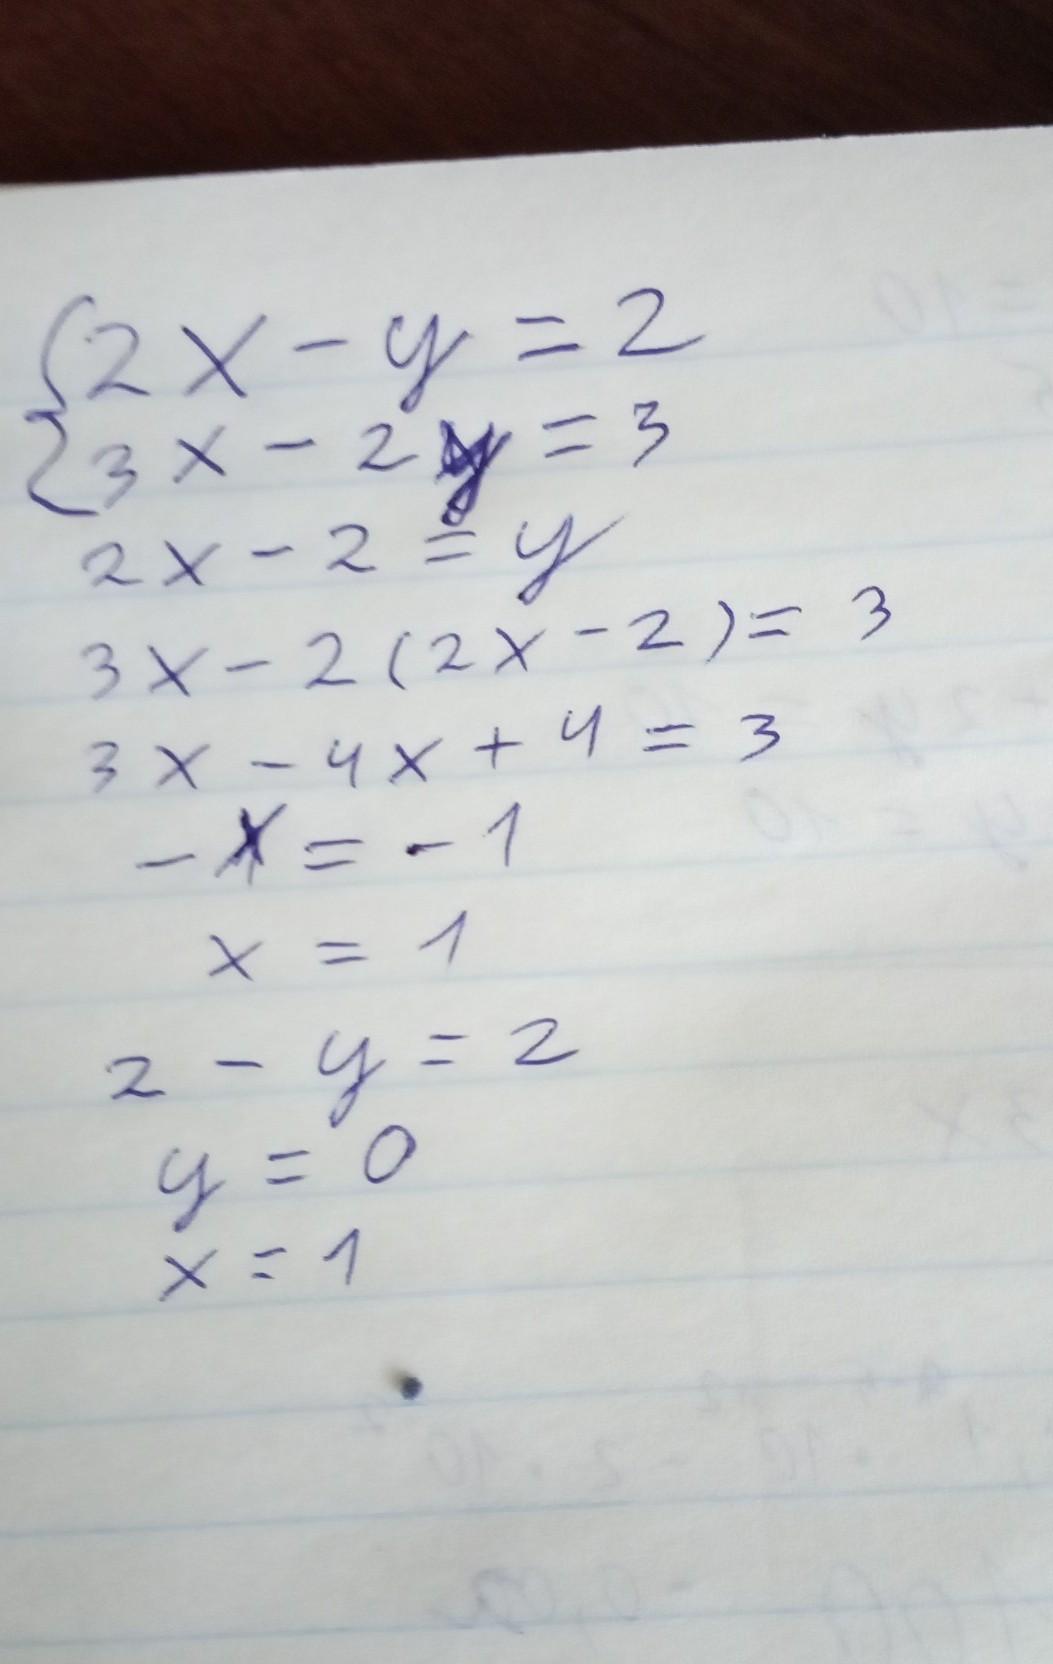 {2x - y = 2
3x - 2y = 3
2x - 2 = y
3x - 2(2x - 2) = 3
3x - 4x + 4 = 3
- x = - 1
x = 1
2 - y = 2
y = 0
x = 1